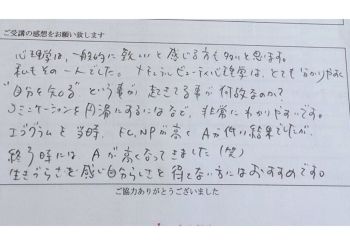 ご受講の感想をお願い致します
心理学は、一般的に難しいと感じる方も多いと思います。
私もその一人でした。ナチュラルビューティ心理学は、とても分かりやすく
"自分を知る"という事が 起きてる事が 何故なのか?
コミニケーションを円滑にするには など、非常にわかりやすいです。
エゴグラムも当時、FC,NPが高く Aが低い結果でしたが、
終了時には Aが高くなってきました(笑)
生きづらさを感じ自分らしさを得てない方にはおすすめです。
ご協力ありがとうございました